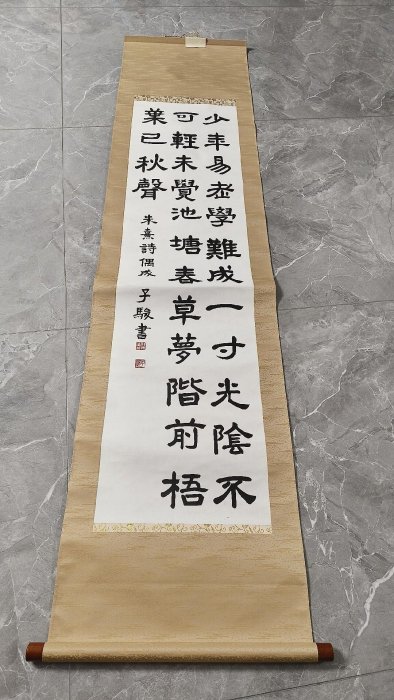 少年易老學難成一寸光陰不
可輕未覺池塘春草夢階前梧
葉已秋聲
朱熹詩偶成 子駿書